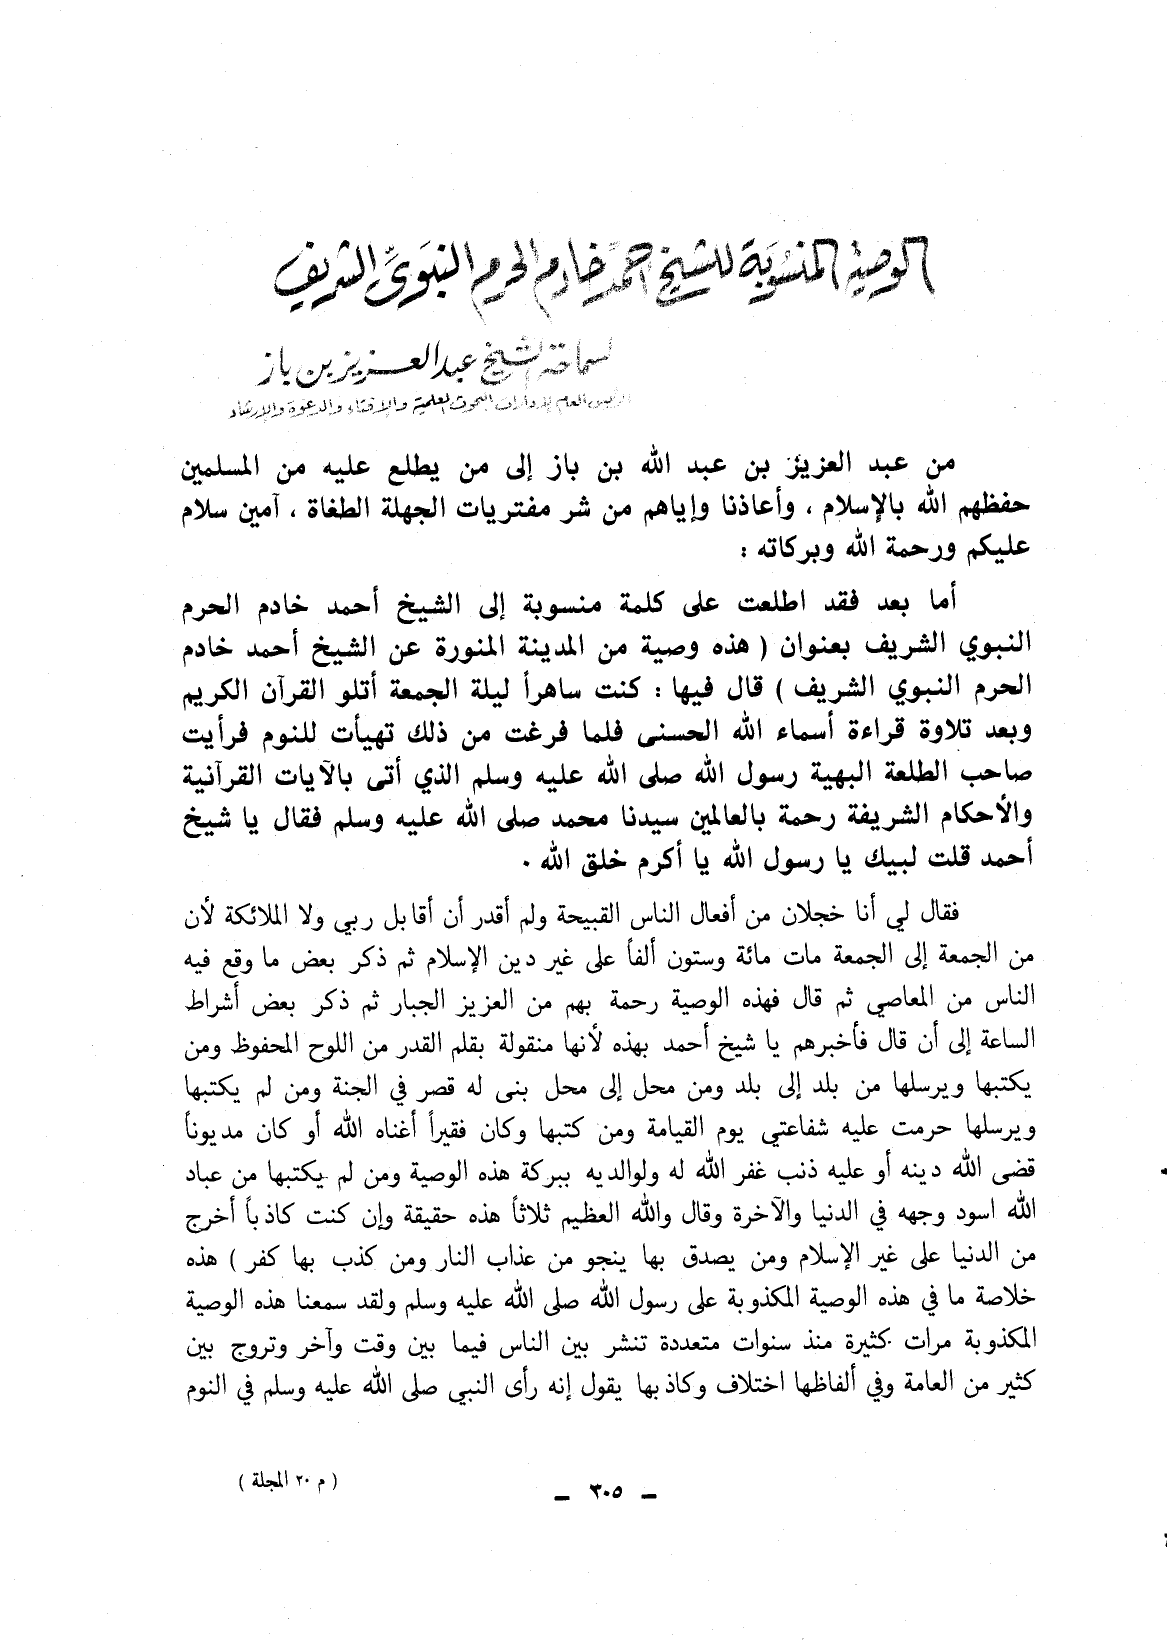 الوصية المنسوبة للشيخ أحمد خادم الحرم النبوي الشريف
لسماحة الشيخ عبد العزيز بن باز
الرئيس العام لإدارات البحوث العلمية والإفتاء والدعوة والإرشاد
من عبد العزيز بن عبد الله بن باز إلى من يطلع عليه من المسلمين
حفظهم الله بالإسلام ، وأعاذنا وإياهم من شر مفتريات الجهلة الطغاة ، آمين سلام
عليكم ورحمة الله وبركاته :
أما بعد فقد اطلعت على كلمة منسوبة إلى الشيخ أحمد خادم الحرم
النبوي الشريف بعنوان ( هذه وصية من المدينة المنورة عن الشيخ أحمد خادم
الحرم النبوي الشريف ) قال فيها : كنت ساهراً ليلة الجمعة أتلو القرآن الكريم
وبعد تلاوة قراءة أسماء الله الحسنى فلما فرغت من ذلك تهيأت للنوم فرأيت
صاحب الطلعة البهية رسول الله صلى الله عليه وسلم الذي أتى بالآيات القرآنية
والأحكام الشريفة رحمة بالعالمين سيدنا محمد صلى الله عليه وسلم فقال يا شيخ
أحمد قلت لبيك يا رسول الله يا أكرم خلق الله .
فقال لي أنا خجلان من أفعال الناس القبيحة ولم أقدر أن أقابل ربي ولا الملائكة لأن
من الجمعة إلى الجمعة مات مائة وستون ألفاً على غير دين الإسلام ثم ذكر بعض ما وقع فيه
الناس من المعاصي ثم قال فهذه الوصية رحمة بهم من العزيز الجبار ثم ذكر بعض أشراط
الساعة إلى أن قال فأخبرهم يا شيخ أحمد بهذه لأنها منقولة بقلم القدر من اللوح المحفوظ ومن
يكتبها ويرسلها من بلد إلى بلد ومن محل إلى محل بنى له قصر في الجنة ومن لم يكتبها
ويرسلها حرمت عليه شفاعتي يوم القيامة ومن كتبها وكان فقيراً أغناه الله أو كان مديوناً
قضى الله دينه أو عليه ذنب غفر الله له ولوالديه ببركة هذه الوصية ومن لم يكتبها من عباد
الله اسود وجهه في الدنيا والآخرة وقال والله العظيم ثلاثاً هذه حقيقة وإن كنت كاذباً أخرج
من الدنيا على غير الإسلام ومن يصدق بها ينجو من عذاب النار ومن كذب بها كفر ) هذه
خلاصة ما في هذه الوصية المكذوبة على رسول الله صلى الله عليه وسلم ولقد سمعنا هذه الوصية
المكذوبة مرات كثيرة منذ سنوات متعددة تنشر بين الناس فيما بين وقت وآخر وتروج بين
كثير من العامة وفي ألفاظها اختلاف وكاذبها يقول إنه رأى النبي صلى الله عليه وسلم في النوم
( م ٢٠ المجلة )
– ٣٠٥ –